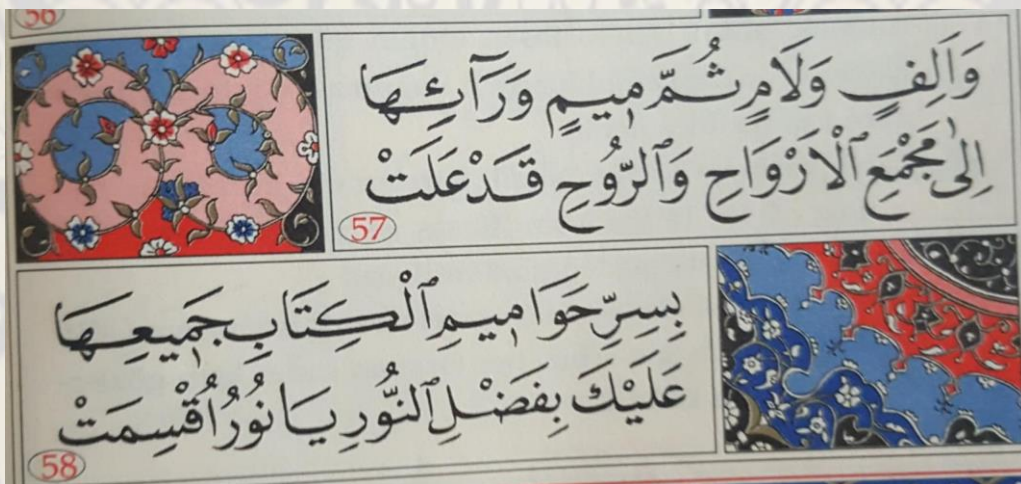 56
وَاَلِفٍ وَلَامٍ ثُمَّ مٖيمٍ وَرَآئِهَا
اِلٰى مَجْمَعِ ٱلْاَرْوَاحِ وَٱلرُّوحِ قَدْ عَلَتْ
57
بِسِرِّ حَوَامٖيمِ ٱلْكِتَابِ جَمٖيعِهَا
عَلَيْكَ بِفَضْلِ ٱلنُّورِ يَا نُورُ اُقْسِمَتْ
58